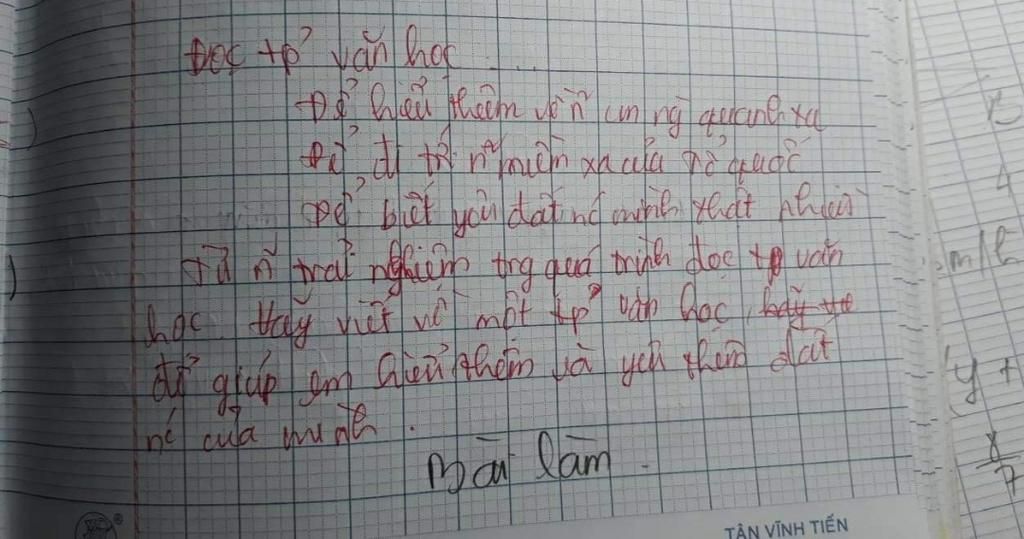 Đọc tp văn học ....
Để hiểu thêm về ñ con ng quanh xa
Để đi tới ñ miền xa của Tổ quốc
Để biết yêu đất nc mình thật nhiều
Từ ñ trải nghiệm trg quá trình đọc tp văn
học. Hãy viết về một tp văn học, hãy
đã giúp em hiểu thêm và yêu thêm đất
nc của mình.
Bài làm.
TÂN VĨNH TIẾN
m/h
y +
x
7
4